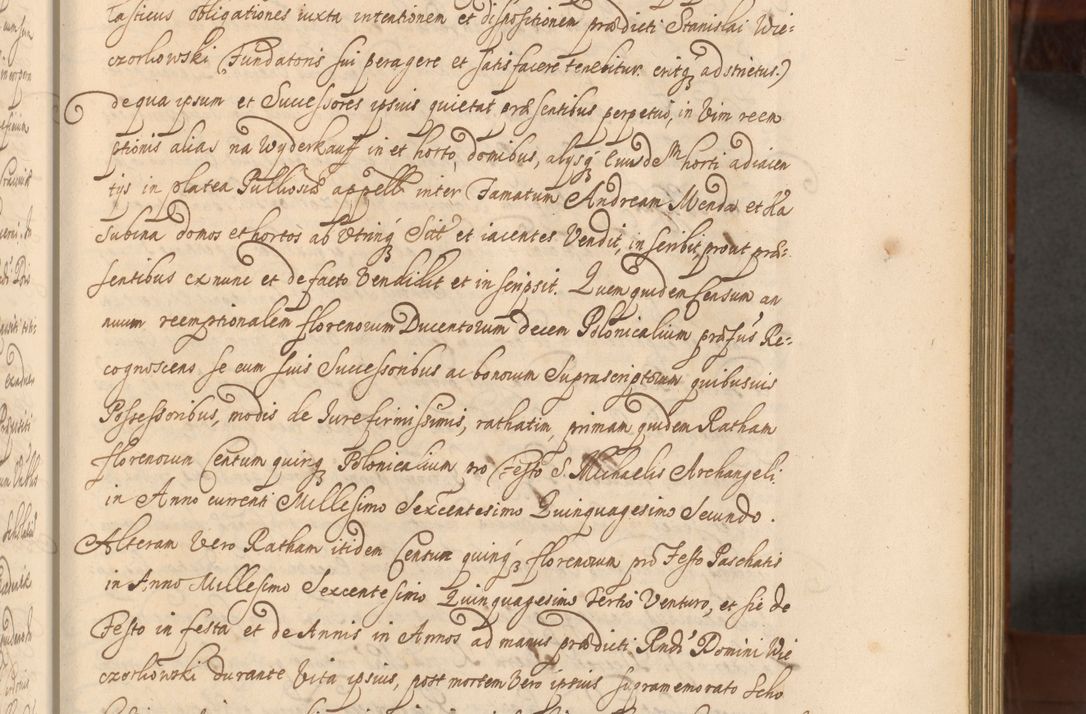 lasticus obligationes iuxta intentionem et dispositionem prædicti Stanislai Wie:
czorkowski (Fundatoris sui peragere et satisfacere tenebitur eritq adstrictus.)
de qua ipsum et Successores ipsius quietat præsentibus perpetuo, in vim reem
ptionis alias na Wyderkauff in et horto, domibus, alysq Eiusdem horti adiacen
tys in platea Pulliosia appell: inter Famatum Andream Menda et Ka
subina domos et hortos ab vtrinq Scit et iacentes Vendit, inscribit, prout præ:
sentibus ex nunc et de facto Vendidit et inscripsit. Quem quidem Censum an
nuum reemptionalem florenorum Ducentorum decem Polonicalium præfus Re:
cognoscens se cum suis Successoribus ac bonorum Suprascriptorum quibusuis
Possessoribus, modis de Iure firmissimis, rathatim, primam quidem Ratham
florenorum Centum quinq Polonicalium pro Festo S. Michaelis Archangeli
in Anno currenti Millesimo Sexcentesimo Quinquagesimo Secundo.
Alteram Vero Ratham itidem Centum quinq florenorum pro Festo Paschatis
in Anno Millesimo Sexcentesimo Quinquagesimo Tertio Venturo, et sic de
Festo in festa et de Annis in Annos ad manus prædicti Rndi Domini Wie
czorkowski durante Vita ipsius, post mortem Vero ipsius supramemorato Scho